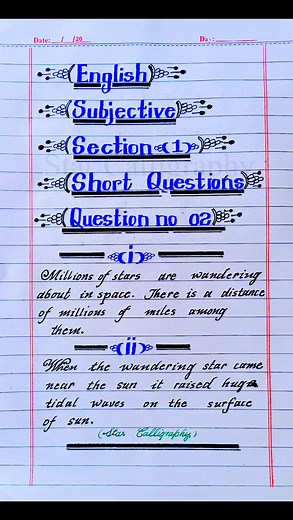 Date: __/__/20__ Day:________
English
Subjective
Section (1)
Short Questions
Question no 02
(i)
Millions of stars are wandering
about in space. There is a distance
of millions of miles among
them.
(ii)
When the wandering star came
near the sun it raised huge
tidal waves on the surface
of sun.
(Star Calligraphy)